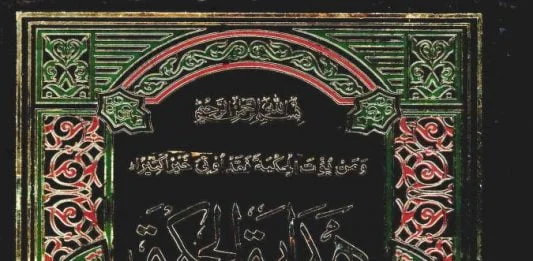 بسم الله الرحمن الرحيم
ومن يؤت الحكمة فقد أوتي خيرا كثيرا
هداية الحكمة